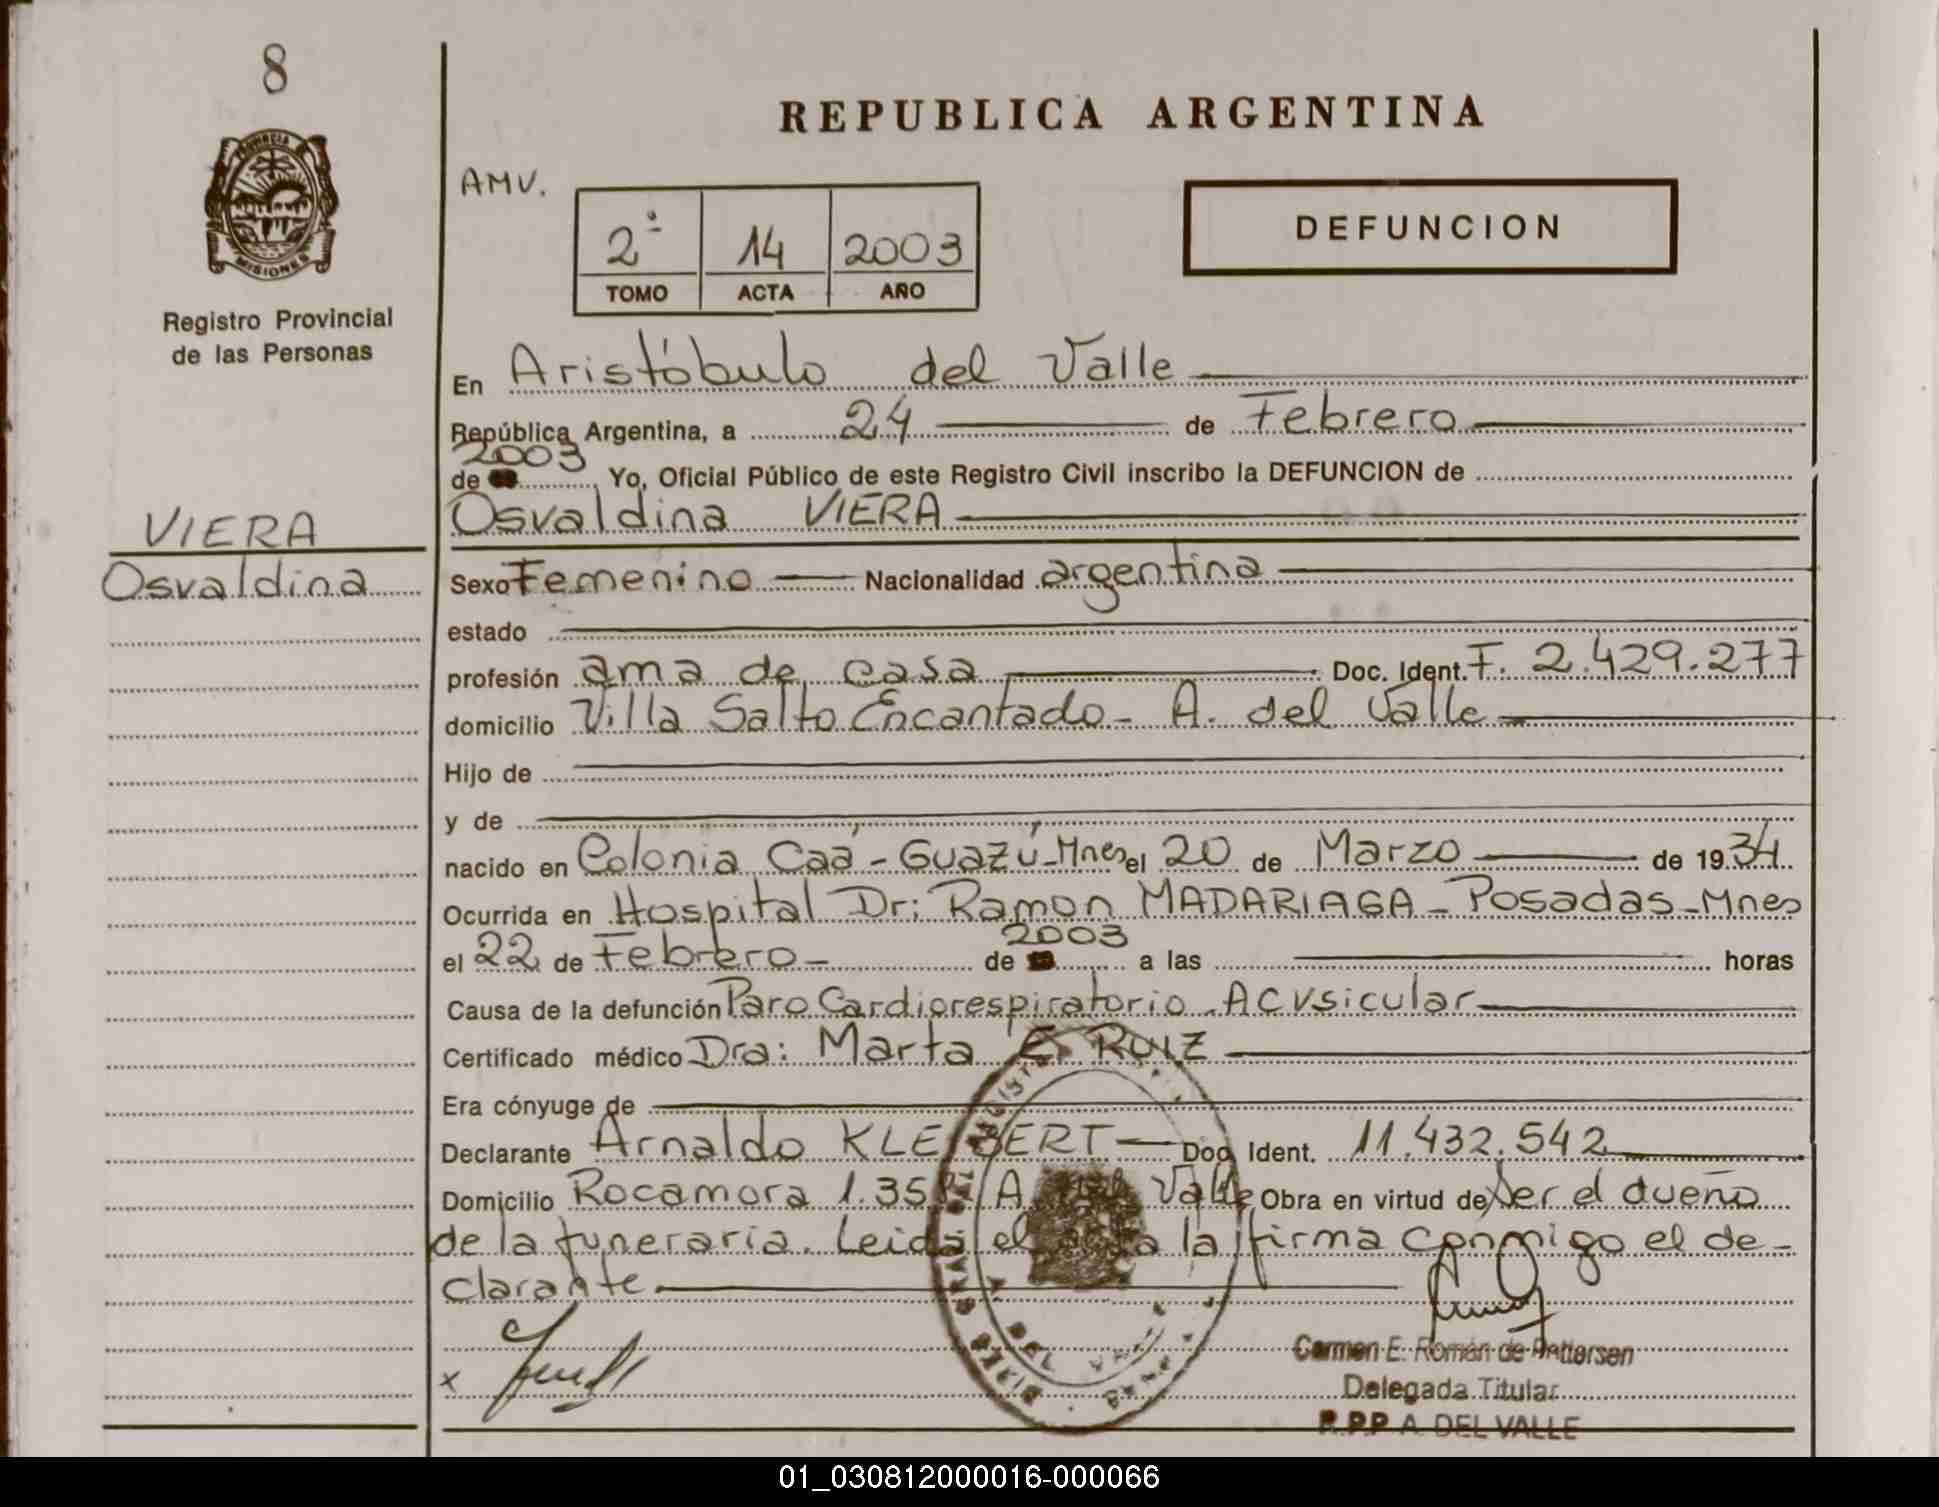 8
PROVINCIA
MISIONES
Registro Provincial
de las Personas
VIERA
Osvaldina
REPUBLICA ARGENTINA
AMV.
2º 14 2003
TOMO ACTA AÑO
DEFUNCION
En Aristóbulo del Valle
República Argentina, a 24 de Febrero
2003
de Yo, Oficial Público de este Registro Civil inscribo la DEFUNCION de
Osvaldina VIERA
Sexo Femenino Nacionalidad argentina
estado
profesión ama de casa Doc. Ident. F. 2.429.277
domicilio Villa Salto Encantado - A. del Valle
Hijo de
y de
nacido en Colonia Caá-Guazú-Mnes el 20 de Marzo de 1934
Ocurrida en Hospital Dr: Ramon MADARIAGA - Posadas - Mnes
2003
el 22 de Febrero - de a las horas
Causa de la defunción Paro Cardiorespiratorio. ACVsicular
Certificado médico Dra: Marta E. RUIZ
Era cónyuge de
Declarante Arnaldo KLEIBERT Doc. Ident. 11.432.542
Domicilio Rocamora A. del Valle Obra en virtud de Ser el dueño
de la funeraria. Leida el acta la firma conmigo el de-
clarante
x
Carmen E. Román de Pettersen
Delegada Titular
R.P.P. A. DEL VALLE
DEL VALLE
01_030812000016-000066